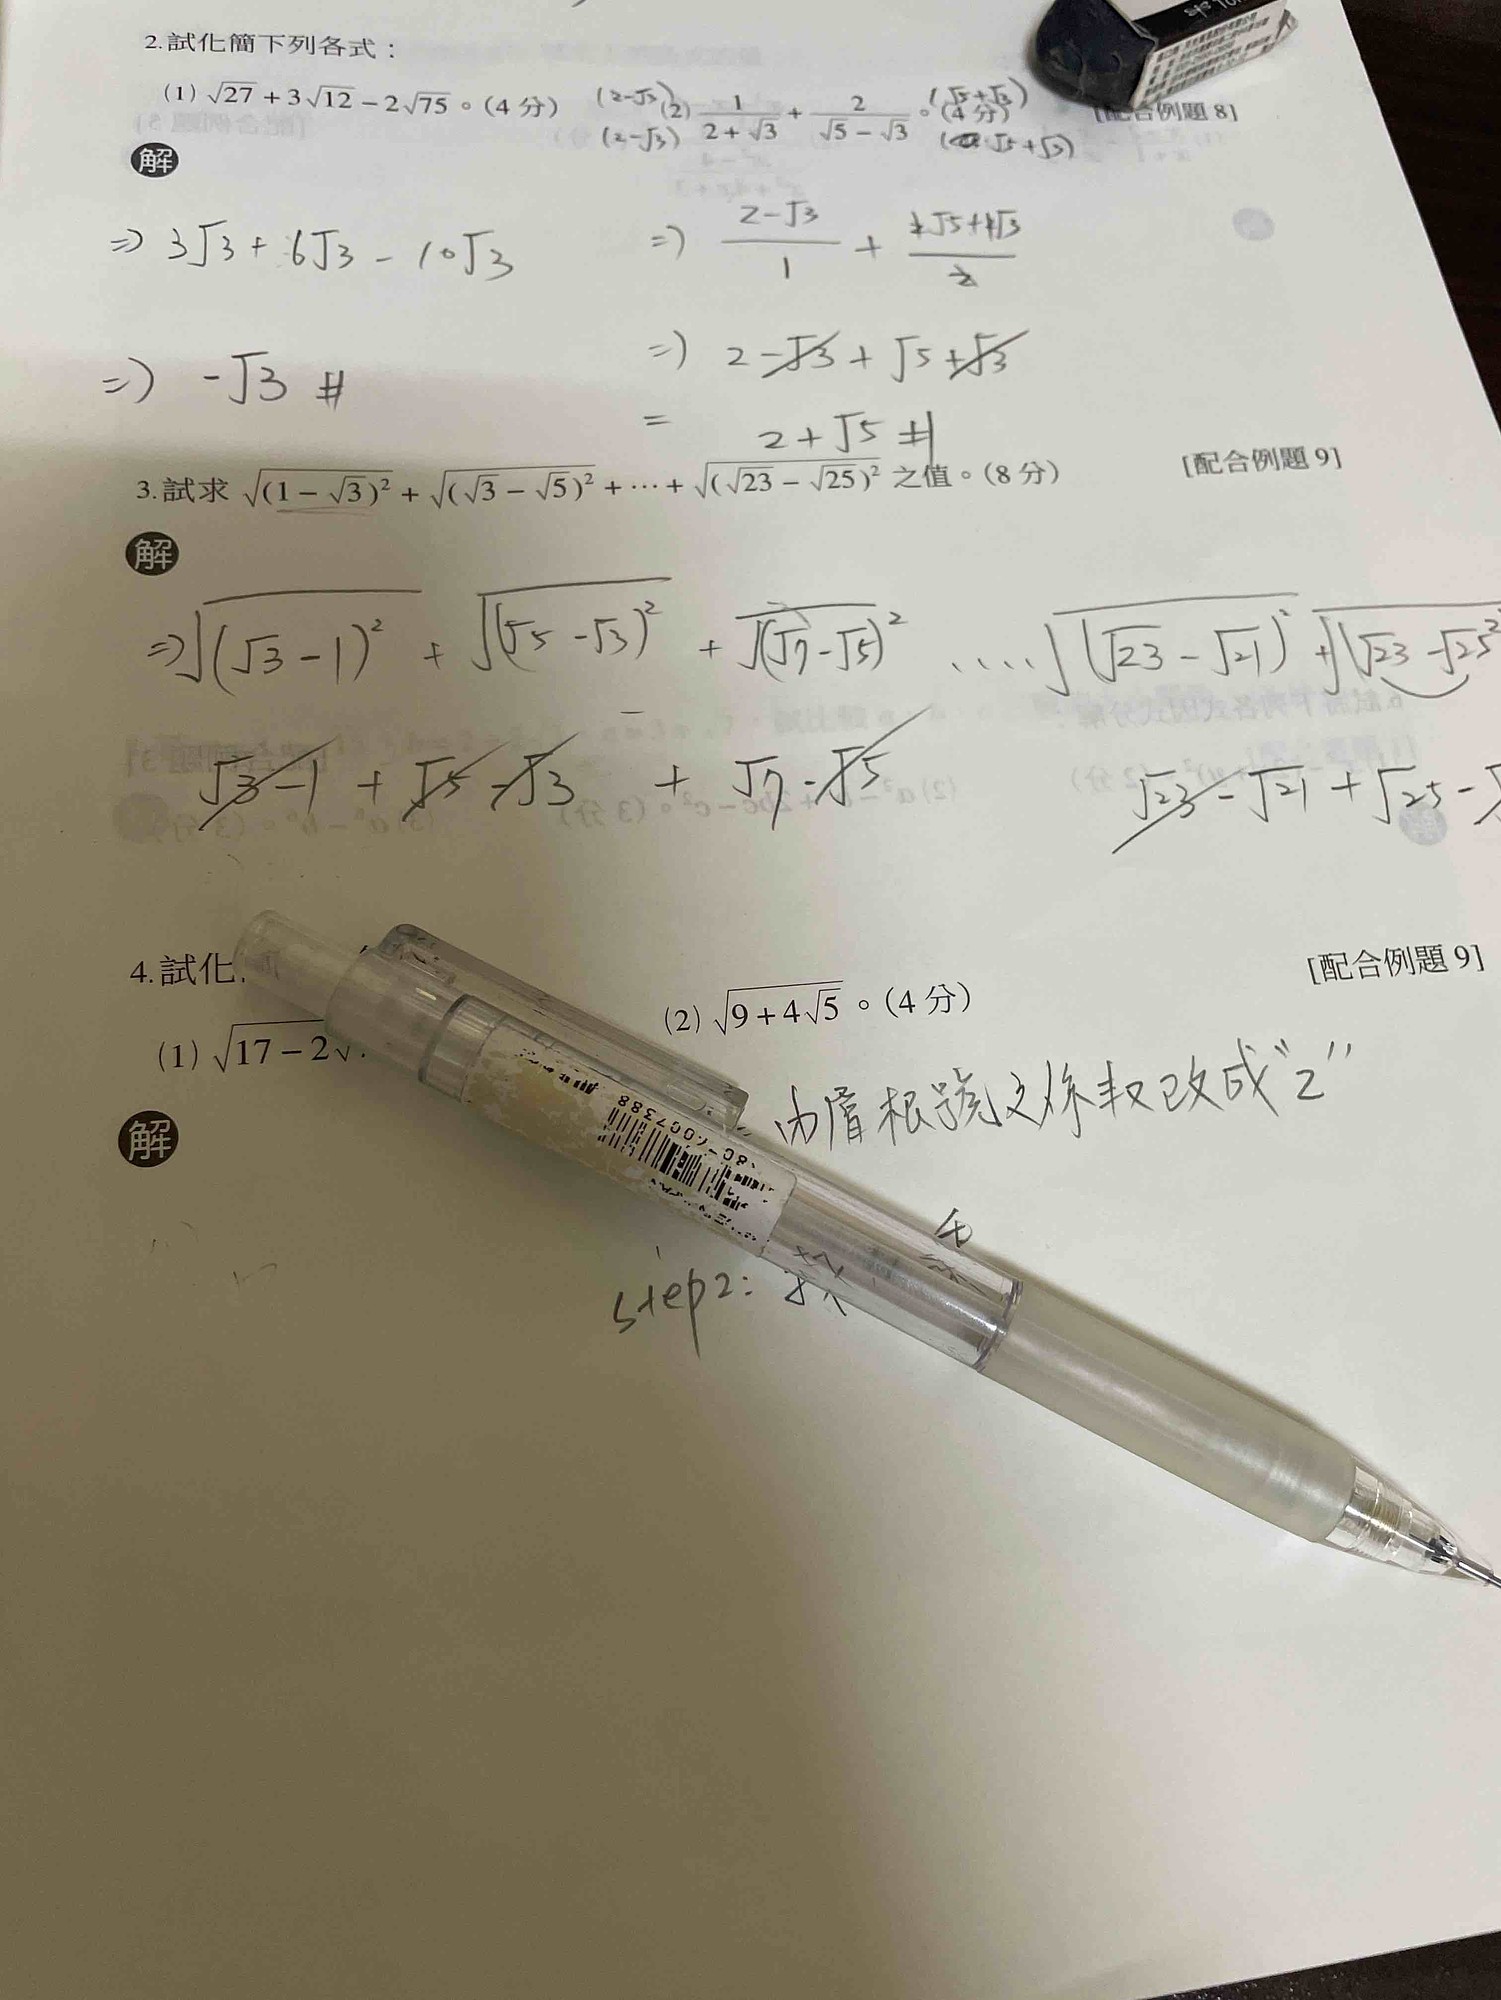 2.試化簡下列各式：
(1) √27 + 3√12 − 2√75 。(4 分)
(2−√3) (2) 1/(2+√3) + 2/(√5−√3) 。(4 分) (√5+√3) [配合例題 8]
(2−√3) (√5+√3)
解
⇒ 3√3 + 6√3 − 10√3
⇒ −√3 #
⇒ (2−√3)/1 +
⇒ 2 −√3 + √5 +√3
= 2 + √5 #
3.試求 √(1−√3)² + √(√3−√5)² + ⋯ + √(√23−√25)² 之值。(8 分) [配合例題 9]
解
⇒ √(√3−1)² + √(√5−√3)² + √(√7−√5)² ..... √(√23−√21)² + √(√23−√25²
√3−1 + √5−√3 + √7−√5 √23−√21 + √25 −
4.試化 [配合例題 9]
(1) √17−2√
(2) √9+4√5 。(4 分)
解
內層根號之係數改成"2"
step2: 找
4007388